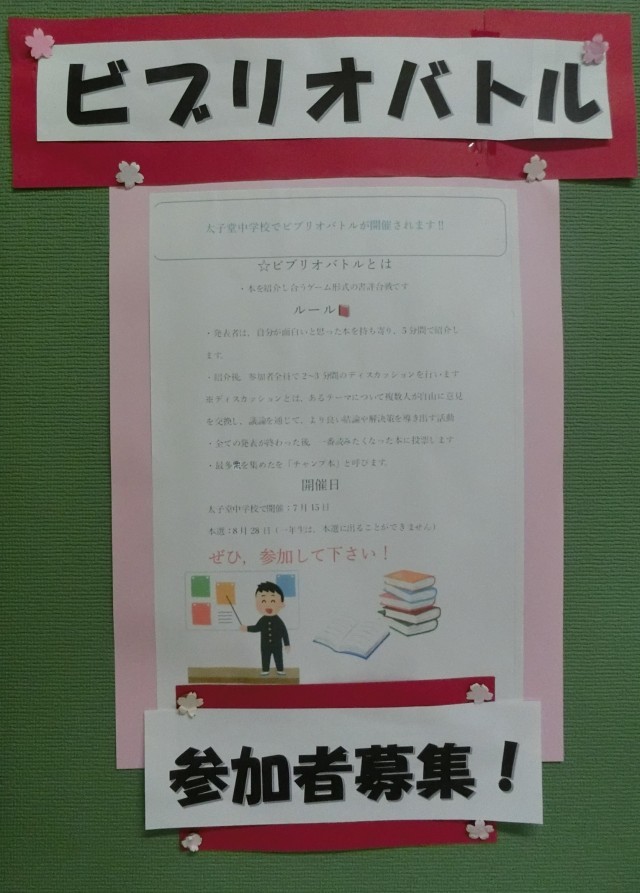 ビブリオバトル
太子堂中学校でビブリオバトルが開催されます!!
☆ビブリオバトルとは
・本を紹介し合うゲーム形式の書評合戦です
ルール
・発表者は、自分が面白いと思った本を持ち寄り、5分間で紹介し
ます。
・紹介後、参加者全員で2~3分間のディスカッションを行います
※ディスカッションとは、あるテーマについて複数人が自由に意見
を交換し、議論を通じて、より良い結論や解決策を導き出す活動
・全ての発表が終わった後、一番読みたくなった本に投票します
・最多票を集めた本を「チャンプ本」と呼びます
開催日
太子堂中学校で開催:7月15日
本選:8月28日(一年生は、本選に出ることができません)
ぜひ,参加して下さい!
参加者募集!